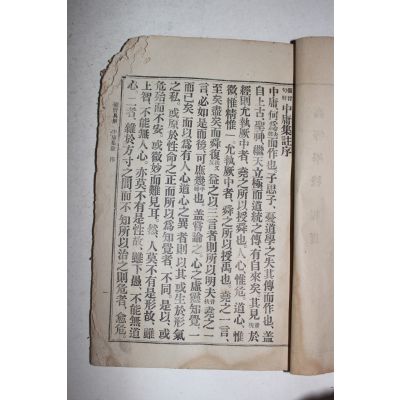 中庸集註序
中庸、何爲而作也、子思子、憂道學之失其傳而作也、蓋
自上古、聖神、繼天立極而道統之傳、有自來矣、其見於
經則允執厥中者、堯之所以授舜也、人心、惟危、道心、惟
微惟精惟一允執厥中者、舜之所以授禹也、堯之一言、
至矣盡矣而舜復益之以三言者則所以明夫堯之一
言必如是而後、可庶幾也、蓋嘗論之、心之虛靈知覺、一
而已矣而以爲有人心道心之異者則以其或生於形氣
之私、或原於性命之正而所以爲知覺者、不同、是以、或
危殆而不安、或微妙而難見耳、然、人莫不有是形故、雖
上智、不能無人心、亦莫不有是性故、雖下愚、不能無道
心、二者、雜於方寸之間而不知所以治之則危者、愈危、